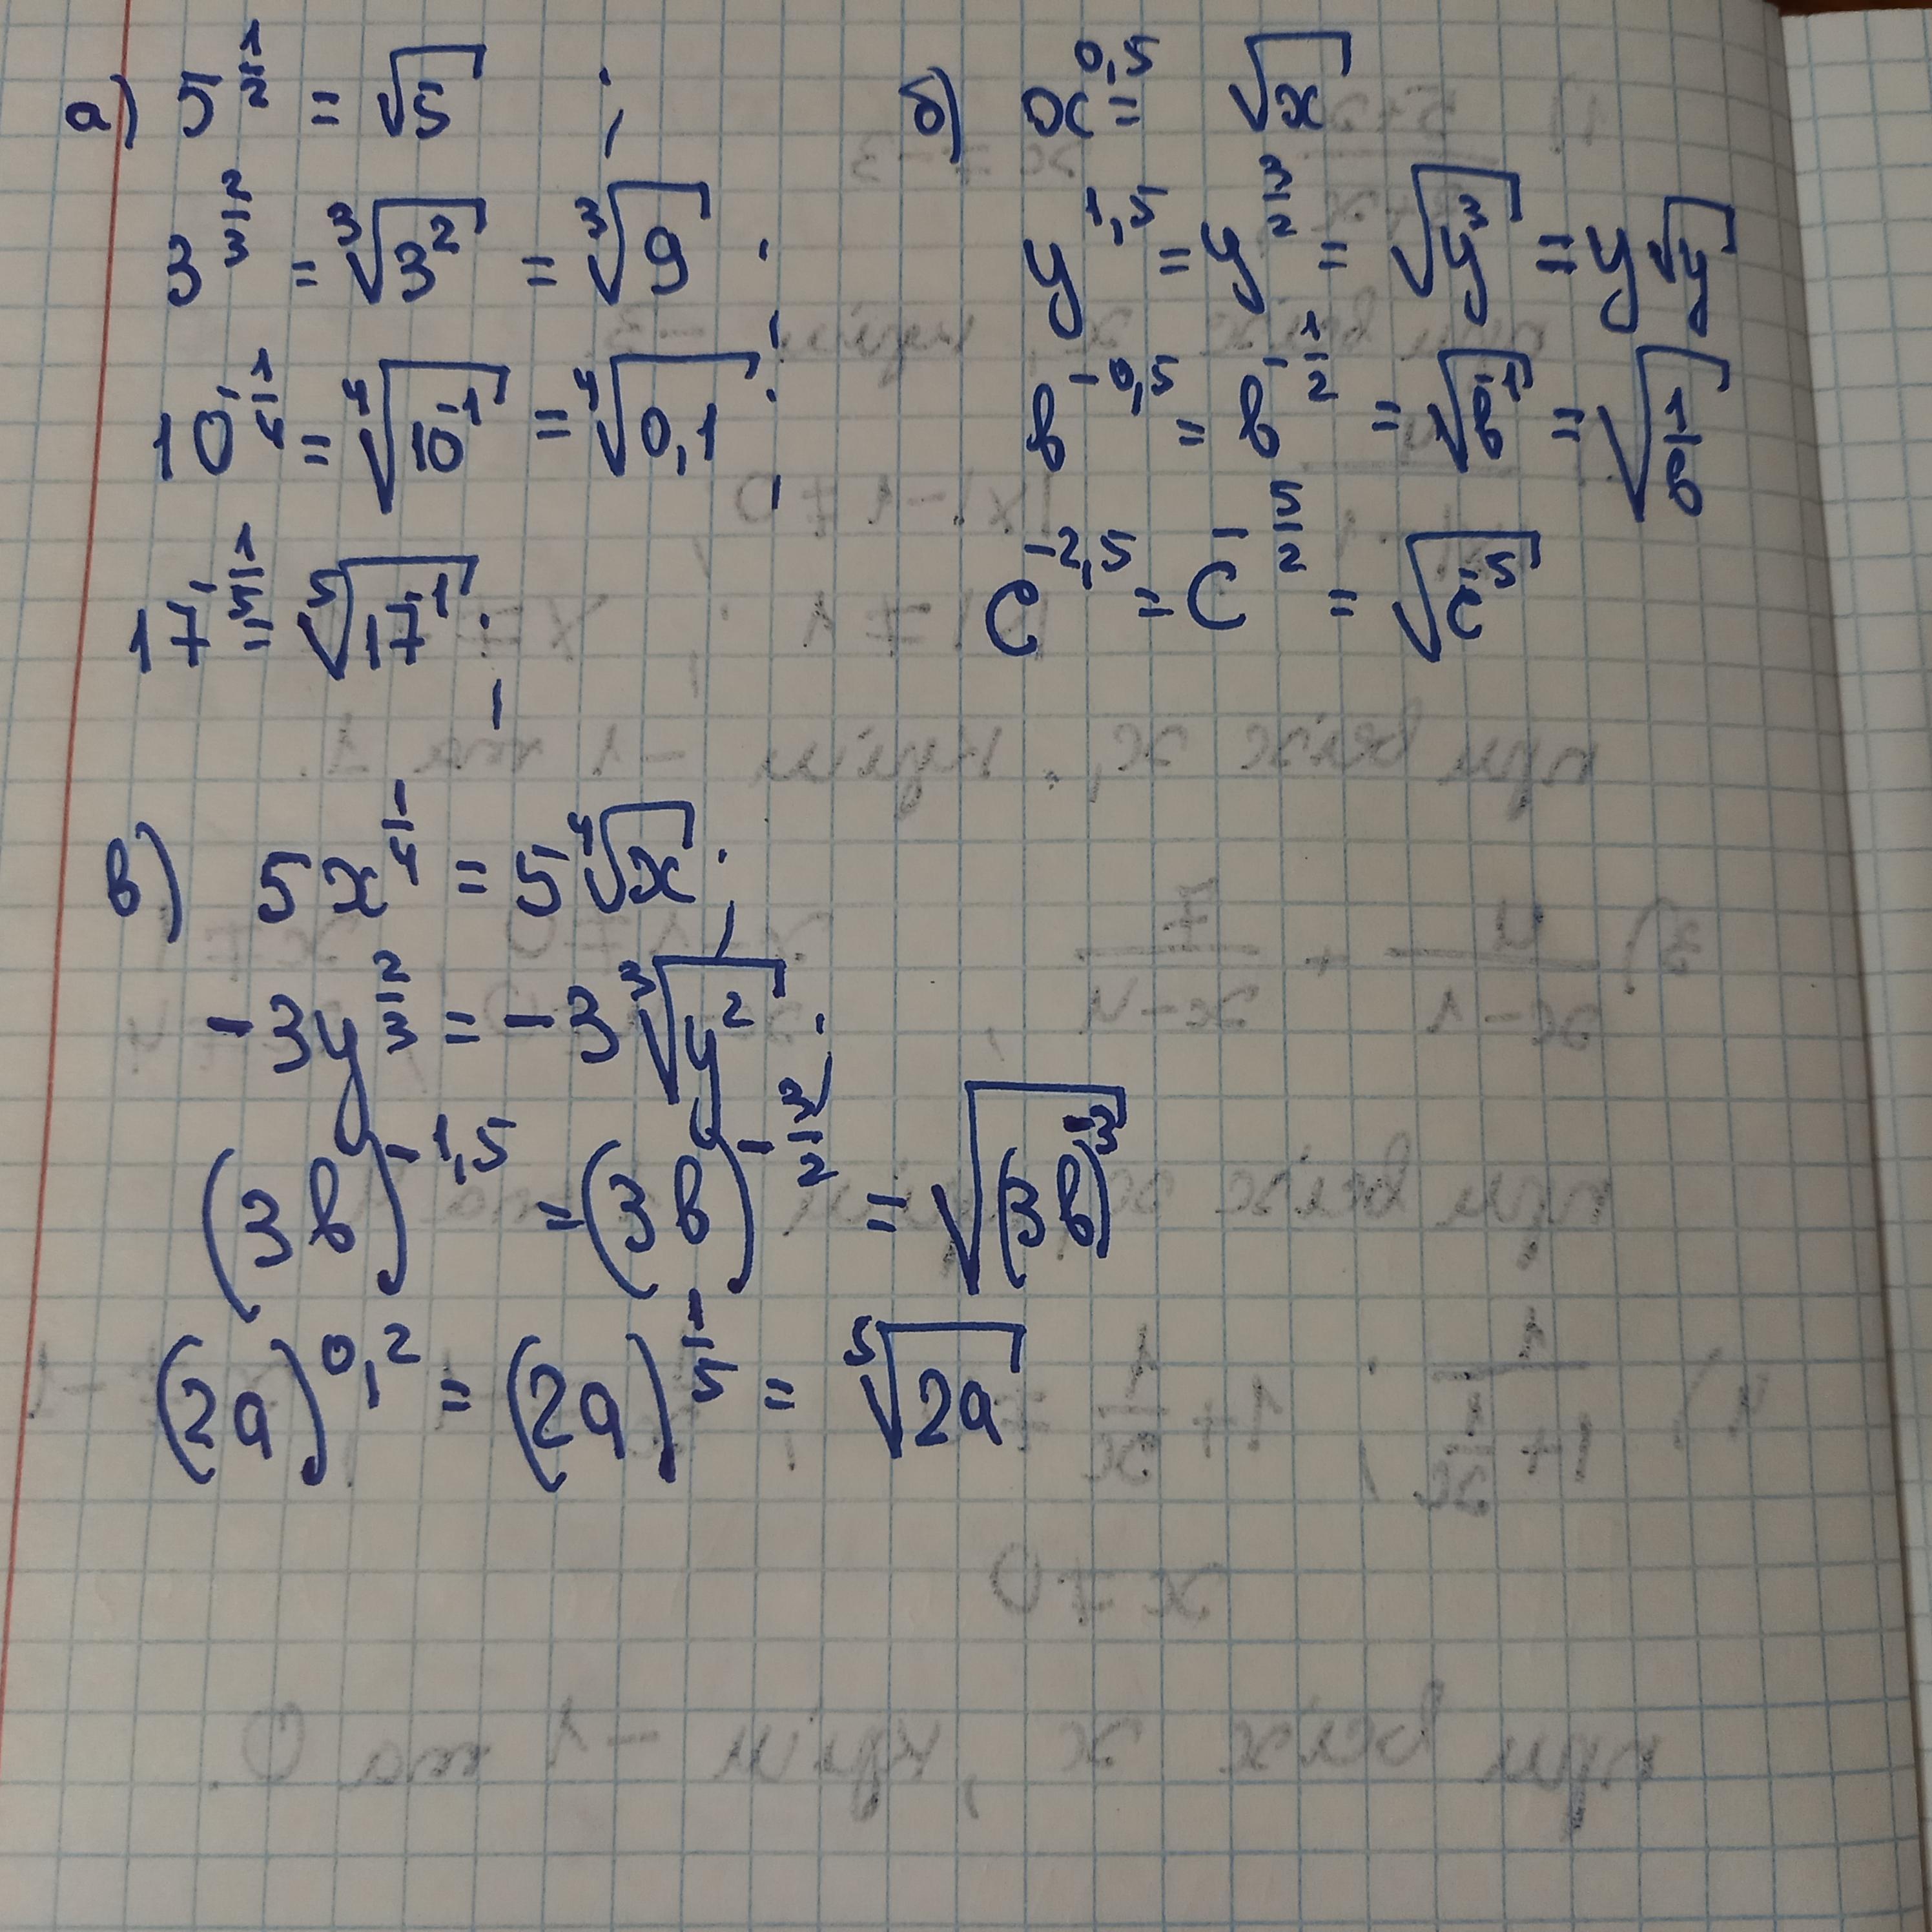 а) 5^{\frac{1}{2}} = \sqrt{5} ;
3^{\frac{2}{3}} = \sqrt[3]{3^2} = \sqrt[3]{9} ;
10^{-\frac{1}{4}} = \sqrt[4]{10^{-1}} = \sqrt[4]{0,1} ;
17^{-\frac{1}{5}} = \sqrt[5]{17^{-1}} ;
б) x^{0,5} = \sqrt{x}
y^{1,5} = y^{\frac{3}{2}} = \sqrt{y^3} = y\sqrt{y}
b^{-0,5} = b^{-\frac{1}{2}} = \sqrt{b^{-1}} = \sqrt{\frac{1}{b}}
c^{-2,5} = c^{-\frac{5}{2}} = \sqrt{c^{-5}}
в) 5x^{\frac{1}{4}} = 5\sqrt[4]{x} ;
-3y^{\frac{2}{3}} = -3\sqrt[3]{y^2} ;
(3b)^{-1,5} = (3b)^{-\frac{3}{2}} = \sqrt{(3b)^{-3}}
(2a)^{0,2} = (2a)^{\frac{1}{5}} = \sqrt[5]{2a}